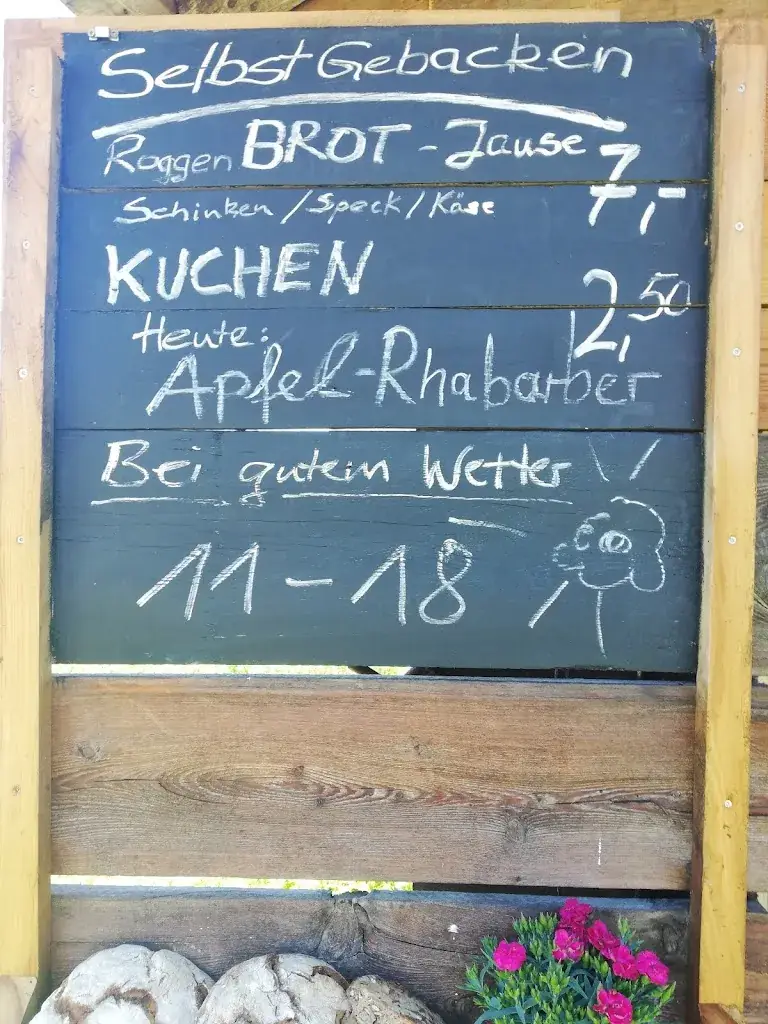 SelbstGebacken
Roggen BROT - Jause 7,-
Schinken / Speck / Käse
KUCHEN 2,50
Heute:
Apfel-Rhabarber
Bei gutem Wetter
11 - 18